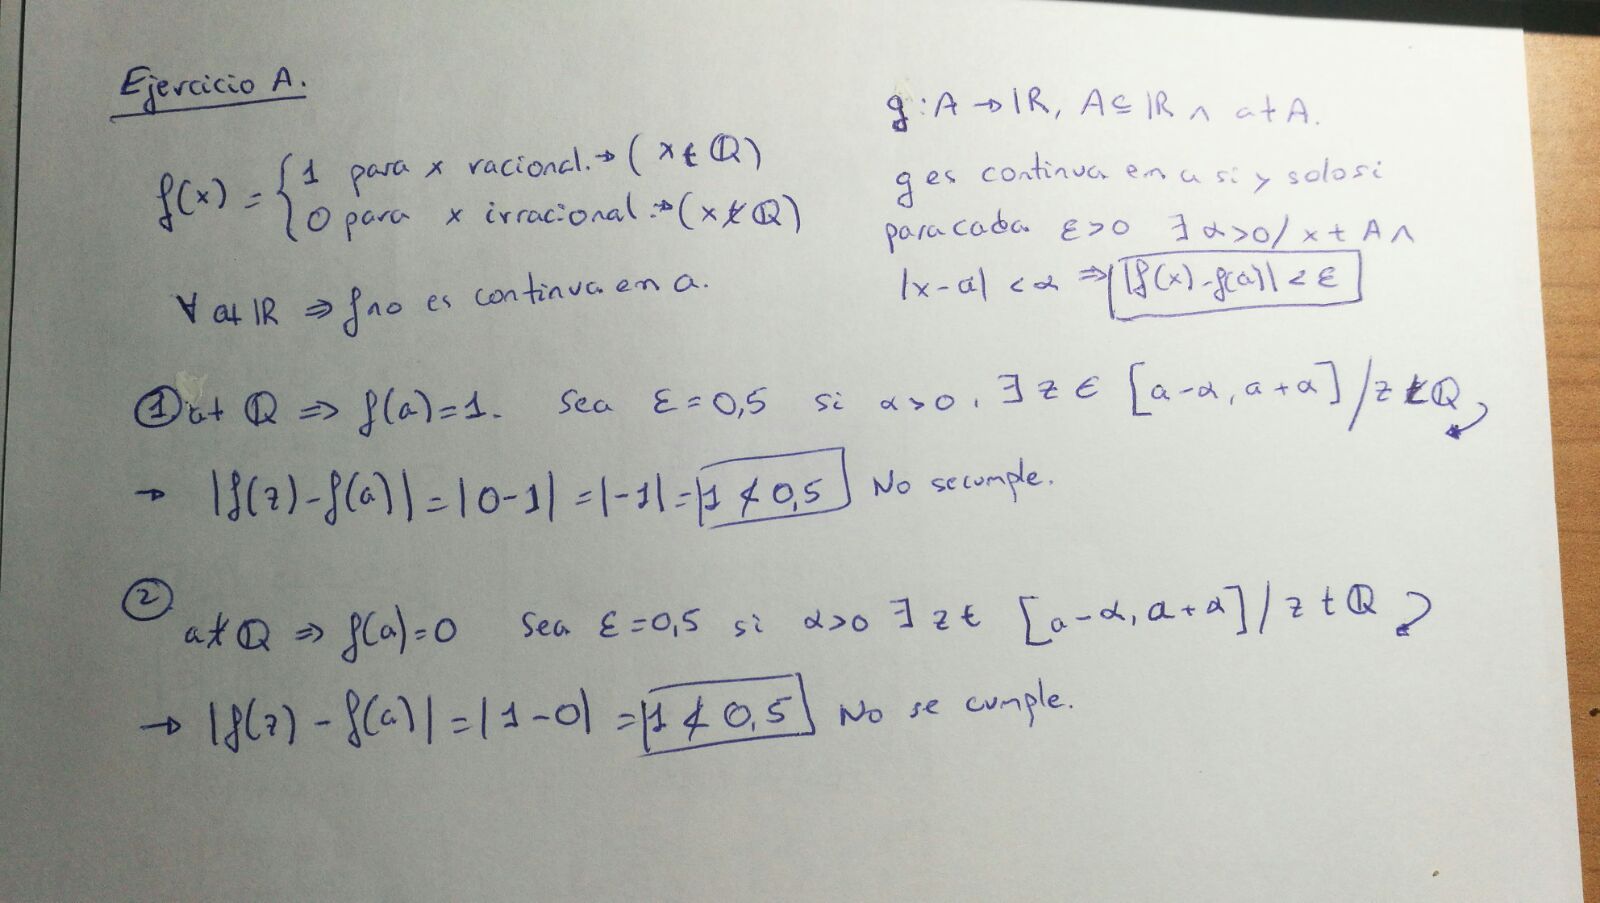 Ejercicio A.
f(x) = { 1 para x racional. → (x ∈ ℚ)
0 para x irracional. → (x ∉ ℚ)
∀ a ∈ ℝ ⇒ f no es continua en a.
g : A → ℝ, A ⊆ ℝ ∧ a ∈ A.
g es continua en a si y solo si
para cada ε > 0 ∃ α > 0 / x ∈ A ∧
|x - a| < α ⇒ |f(x) - f(a)| < ε
① a ∈ ℚ ⇒ f(a) = 1. Sea ε = 0,5 si α > 0. ∃ z ∈ [a - α, a + α] / z ∉ ℚ
→ |f(z) - f(a)| = |0 - 1| = |-1| = 1 ≮ 0,5 No se cumple.
②
a ∉ ℚ ⇒ f(a) = 0 Sea ε = 0,5 si α > 0 ∃ z ∈ [a - α, a + α] / z ∈ ℚ
→ |f(z) - f(a)| = |1 - 0| = 1 ≮ 0,5 No se cumple.